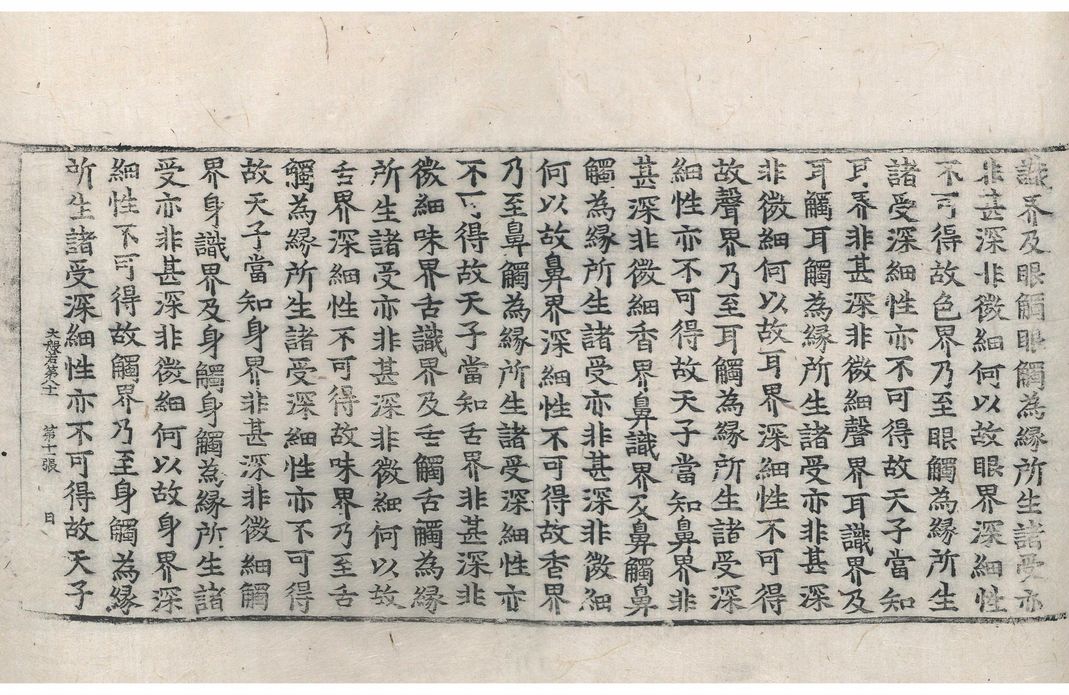 識界及眼觸眼觸為緣所生諸受亦
非甚深非微細何以故眼界深細性
不可得故色界乃至眼觸為緣所生
諸受深細性亦不可得故天子當知
耳界非甚深非微細聲界耳識界及
耳觸耳觸為緣所生諸受亦非甚深
非微細何以故耳界深細性不可得
故聲界乃至耳觸為緣所生諸受深
細性亦不可得故天子當知鼻界非
甚深非微細香界鼻識界及鼻觸鼻
觸為緣所生諸受亦非甚深非微細
何以故鼻界深細性不可得故香界
乃至鼻觸為緣所生諸受深細性亦
不可得故天子當知舌界非甚深非
微細味界舌識界及舌觸舌觸為緣
所生諸受亦非甚深非微細何以故
舌界深細性不可得故味界乃至舌
觸為緣所生諸受深細性亦不可得
故天子當知身界非甚深非微細觸
界身識界及身觸身觸為緣所生諸
受亦非甚深非微細何以故身界深
細性不可得故觸界乃至身觸為緣
所生諸受深細性亦不可得故天子
大般若第八十一 第十張 日